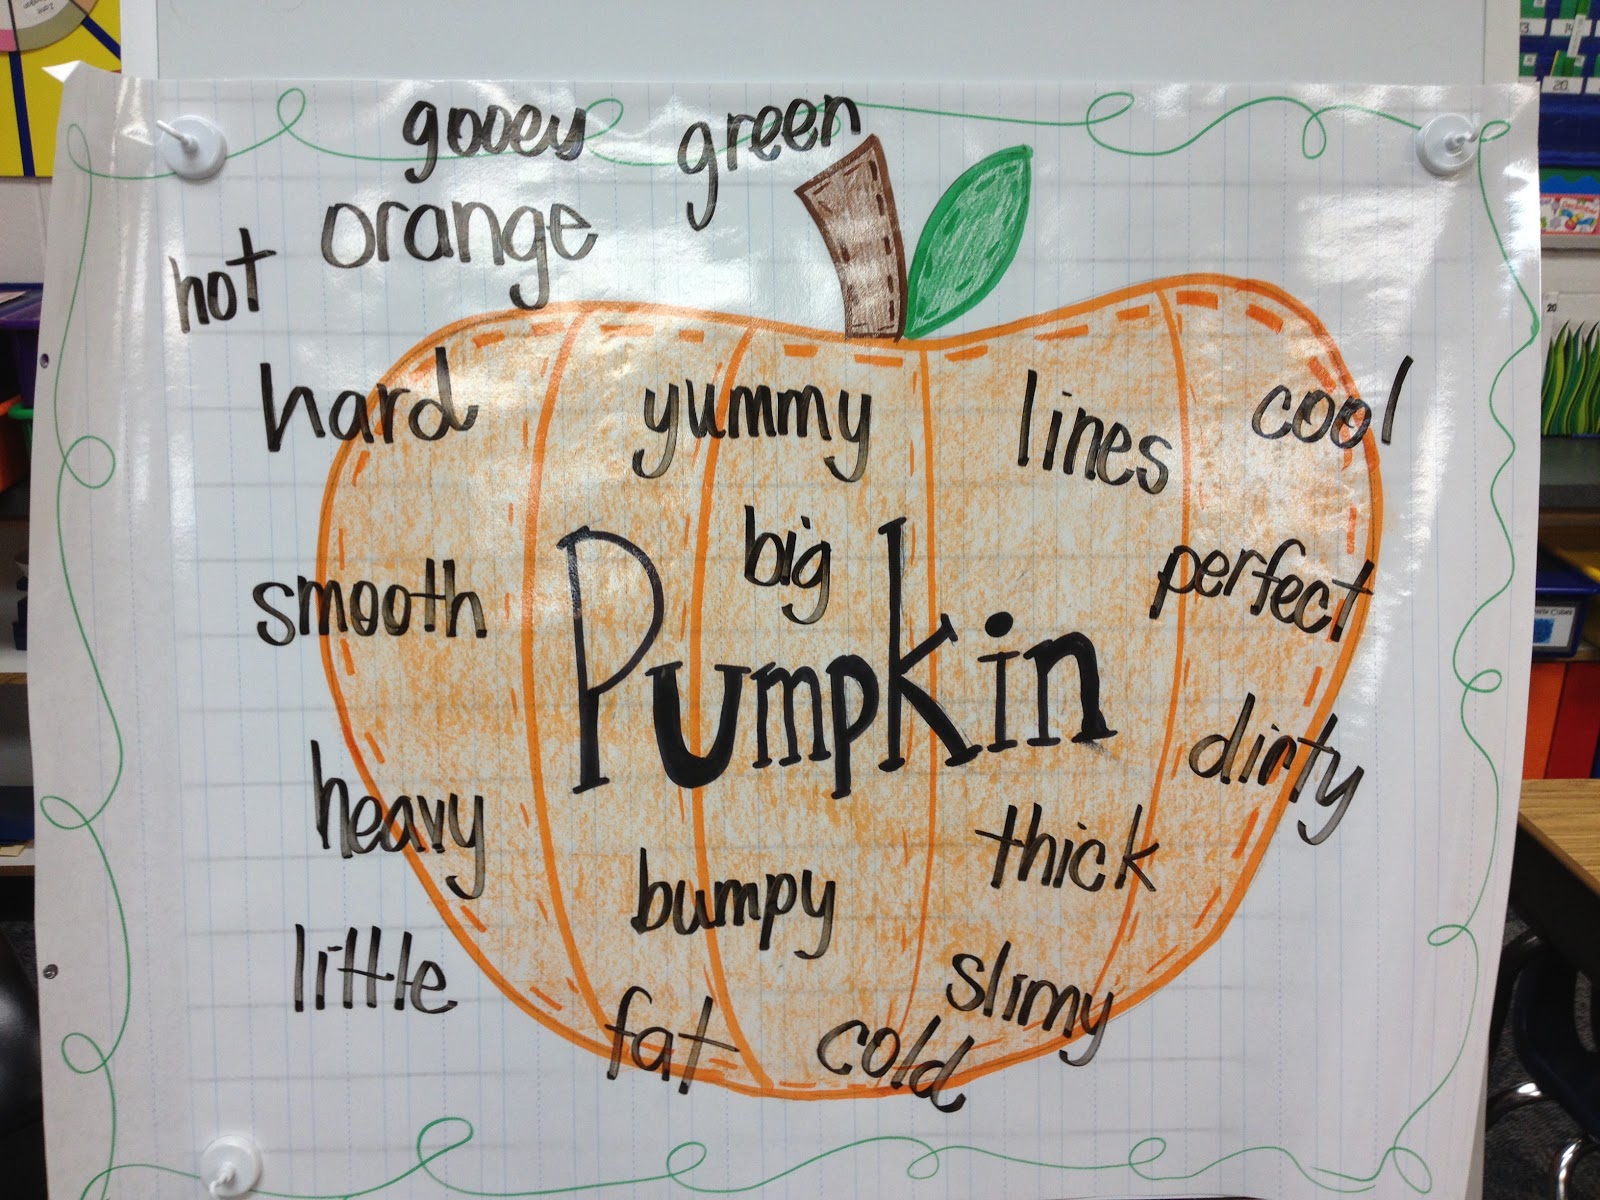 gooey green
orange
hot
hard yummy lines cool
big
smooth Pumpkin perfect
dirty
heavy thick
bumpy
little slimy
fat cold
20
20